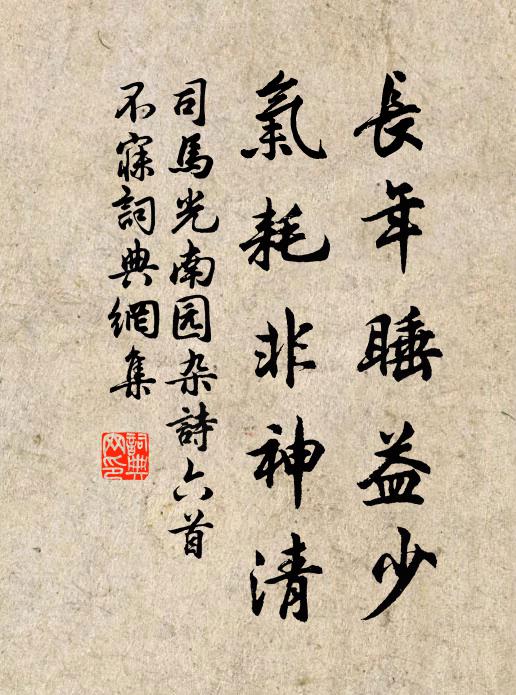 長年睡益少
氣耗非神清
司馬光南园杂詩六首
不寐詞典網集
詞典
网印